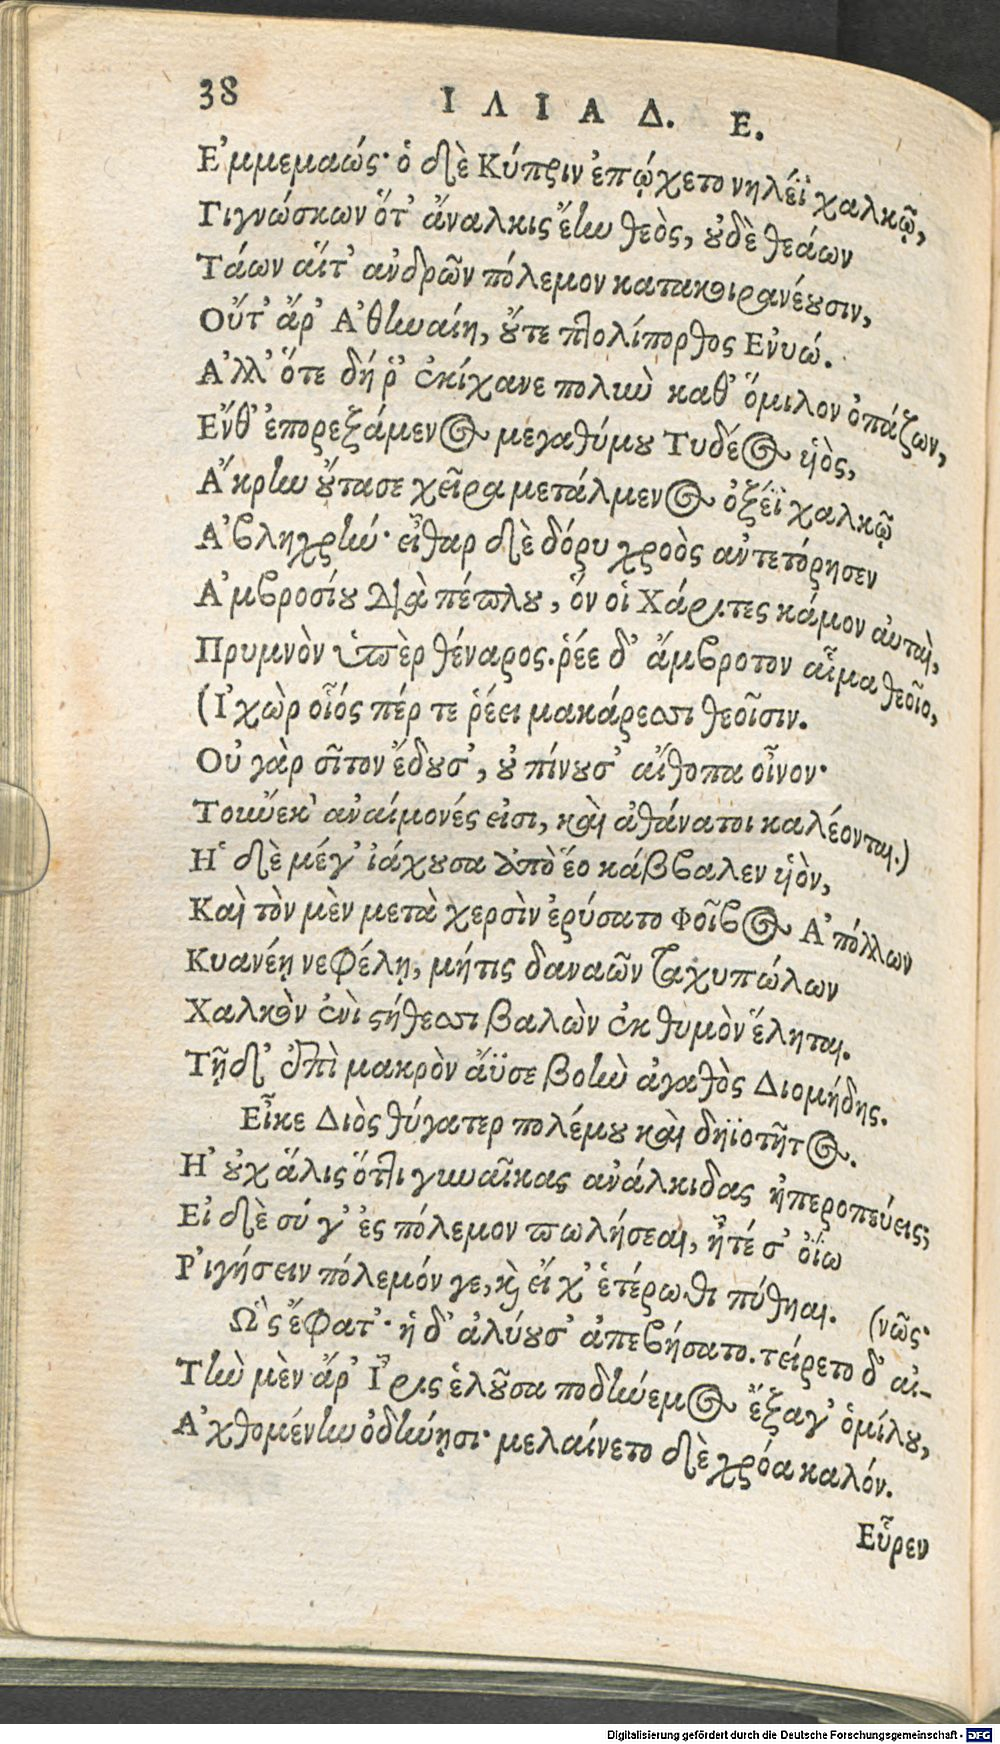 38 ΙΛΙΑΔ. Ε.
Ἐμμεμαώς· ὁ δὲ Κύπριν ἐπῴχετο νηλέϊ χαλκῷ,
Γιγνώσκων ὅτ' ἄναλκις ἔην θεὸς, οὐδὲ θεάων
Τάων αἵτ' ἀνδρῶν πόλεμον κατακοιρανέουσιν,
Οὔτ' ἄρ' Ἀθηναίη, οὔτε πτολίπορθος Ἐνυώ.
Ἀλλ' ὅτε δή ῥ' ἐκίχανε πολὺν καθ' ὅμιλον ὀπάζων,
Ἔνθ' ἐπορεξάμενος μεγαθύμου Τυδέος υἱὸς,
Ἄκρην οὔτασε χεῖρα μετάλμενος ὀξέϊ χαλκῷ
Ἀβληχρήν· εἶθαρ δὲ δόρυ χροὸς ἀντετόρησεν
Ἀμβροσίου διὰ πέπλου, ὅν οἱ Χάριτες κάμον αὐταὶ,
Πρυμνὸν ὑπὲρ θέναρος. ῥέε δ' ἄμβροτον αἷμα θεοῖο,
(Ἰχὼρ οἷός πέρ τε ῥέει μακάρεσσι θεοῖσιν.
Οὐ γὰρ σῖτον ἔδουσ', οὐ πίνουσ' αἴθοπα οἶνον·
Τοὔνεκ' ἀναίμονές εἰσι, καὶ ἀθάνατοι καλέονται.)
Ἡ δὲ μέγ' ἰάχουσα ἀπὸ ἕο κάββαλεν υἱὸν,
Καὶ τὸν μὲν μετὰ χερσὶν ἐρύσατο Φοῖβος Ἀπόλλων
Κυανέῃ νεφέλῃ, μήτις δαναῶν ταχυπώλων
Χαλκὸν ἐνὶ στήθεσσι βαλὼν ἐκ θυμὸν ἕληται.
Τῇ δ' ἐπὶ μακρὸν ἄϋσε βοὴν ἀγαθὸς Διομήδης.
Εἶκε Διὸς θύγατερ πολέμου καὶ δηϊοτῆτος.
Ἦ οὐχ ἅλις ὅττι γυναῖκας ἀνάλκιδας ἠπεροπεύεις;
Εἰ δὲ σύ γ' ἐς πόλεμον πωλήσεαι, ἦ τέ σ' ὀΐω
Ῥιγήσειν πόλεμόν γε, καὶ εἴ χ' ἑτέρωθι πύθηαι. (νῶς·
Ὣς ἔφατ'· ἡ δ' ἀλύουσ' ἀπεβήσατο. τείρετο δ' αἰ-
Τὴν μὲν ἄρ' Ἶρις ἑλοῦσα ποδήνεμος ἔξαγ' ὁμίλου,
Ἀχθομένην ὀδύνῃσι· μελαίνετο δὲ χρόα καλόν.
Εὗρεν
Digitalisierung gefördert durch die Deutsche Forschungsgemeinschaft - DFG